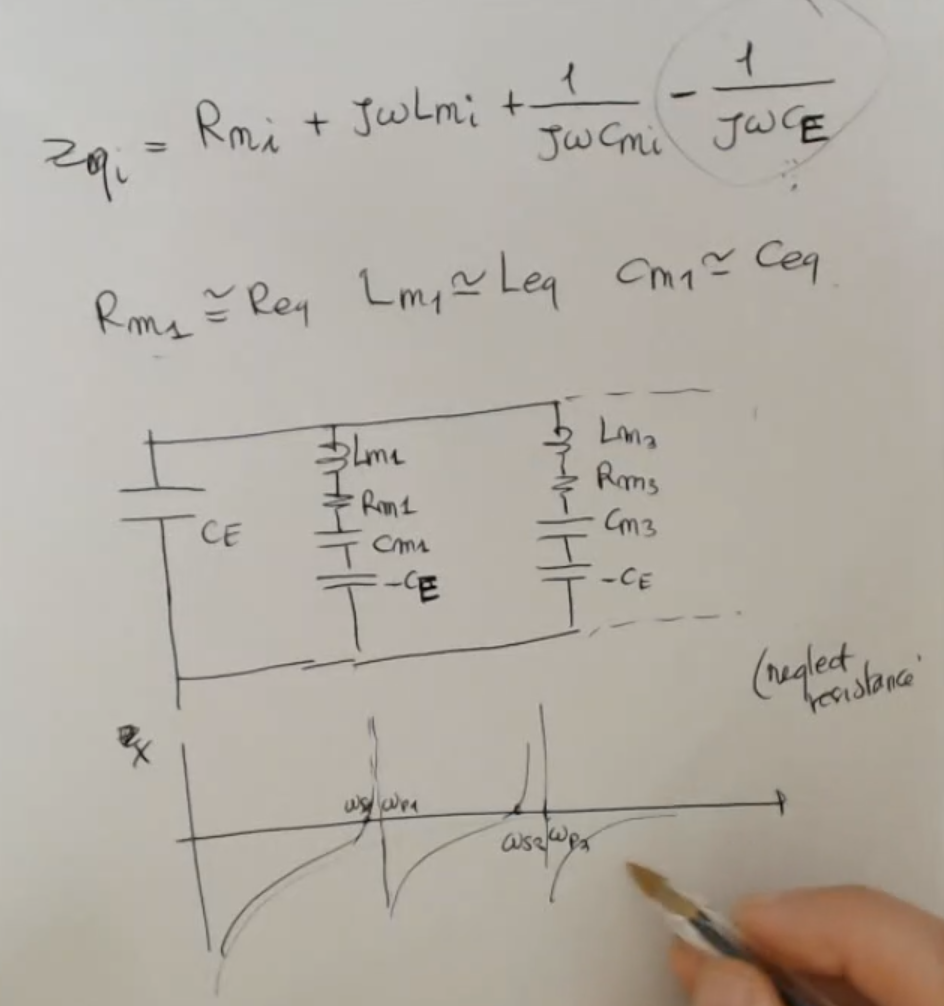 Zqi = Rmi + jωLmi + 1/jωCmi - 1/jωCE
Rm1 ≅ Req Lm1 ≃ Leq Cm1 ≃ Ceq
Lm1
Rm1
Cm1
-CE
CE
Lm3
Rm3
Cm3
-CE
(neglect
resistance
X
ωs1 ωp1
ωs2 ωp2